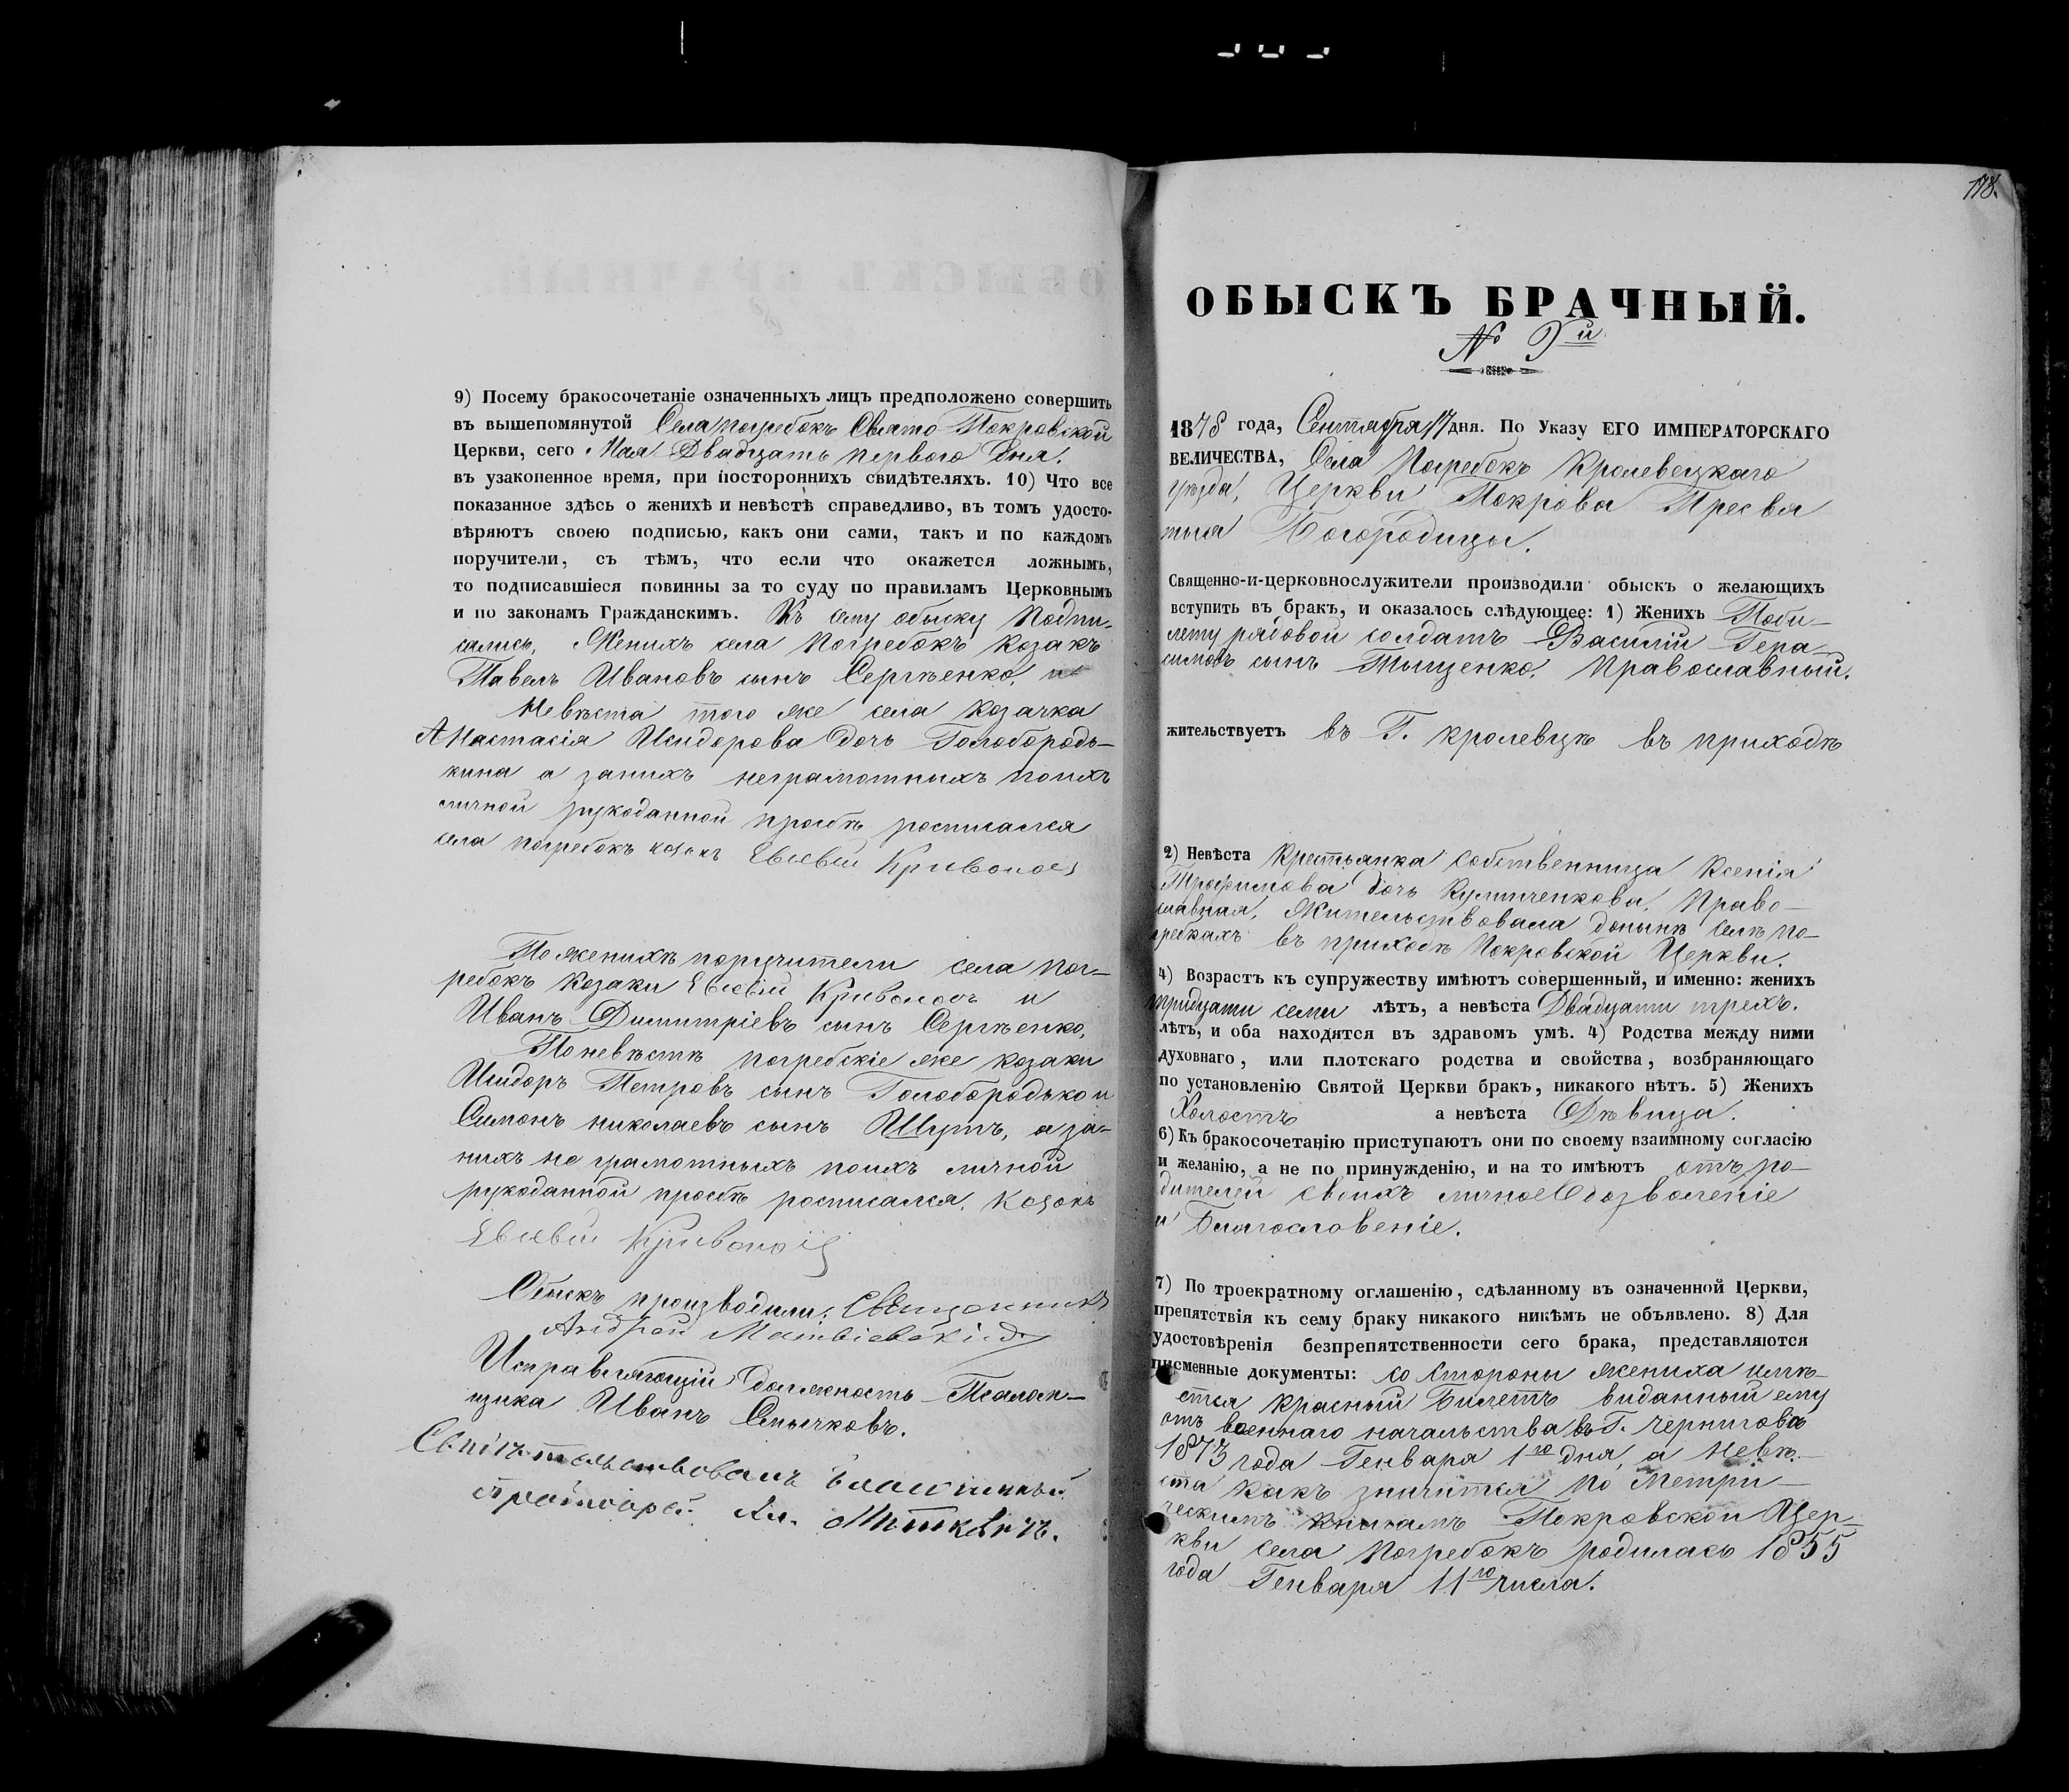 9) Посему бракосочетаніе означенныхъ лицъ предположено совершить
въ вышепомянутой Села погребокъ Свято Покровской
Церкви, сего Мая Двадцать первого Дня.
въ узаконенное время, при постороннихъ свидѣтеляхъ. 10) Что все
показанное здѣсь о женихѣ и невѣстѣ справедливо, въ томъ удосто-
вѣряютъ своею подписью, какъ они сами, такъ и по каждомъ
поручители, съ тѣмъ, что если что окажется ложнымъ,
то подписавшіеся повинны за то суду по правиламъ Церковнымъ
и по законамъ Гражданскимъ. Къ сему обыску Подпи-
сались, Женихъ села Погребокъ Козакъ
Павелъ Ивановъ сынъ Сергѣенко,
Невѣста того же села козачка
Анастасія Исидорова дочь Голобородь-
кина а занихъ неграмотныхъ поихъ
личной рукоданной просьбѣ росписался
села погребокъ козакъ Евсевій Кривоносъ
Поженихѣ поручители села пог-
ребокъ Козаки Евсевій Кривоносъ и
Иванъ Димитріевъ сынъ Сергѣенко,
Поневѣстѣ погребскіе же козаки
Исидоръ Петровъ сынъ Голобородько и
Симонъ николаевъ сынъ Шутъ, а за-
нихъ не грамотныхъ поихъ личной
рукоданной просьбѣ росписался, Козакъ
Евсевій Кривонос
Обыскъ производили: Священникъ
Андрей Матвіевскій
Исправляющій должность Псалом-
щика Иванъ Смычковъ.
Свидѣтельствовалъ Благочинный
Протоіерей Ал.
178.
ОБЫСКЪ БРАЧНЫЙ.
№ 9й
1878 года, Сентября 17 дня. По Указу ЕГО ИМПЕРАТОРСКАГО
ВЕЛИЧЕСТВА, Села Погребокъ Кролевецкаго
уѣзда, Церкви Покрова Пресвя
тыя Богородицы.
Священно-и-церковнослужители производили обыскъ о желающихъ
вступить въ бракъ, и оказалось слѣдующее: 1) Женихъ Поби-
лету рядовой солдатъ Василій Гера-
симовъ сынъ Тыщенко, Православный.
жительствуетъ въ Г. кролевцѣ въ приходѣ
2) Невѣста Крестьянка собственница Ксенія
Трофимова дочь Куличенкова, Право-
славная, Жительствовала донынѣ селѣ по-
гребкахъ въ приходѣ Покровской Церкви.
4) Возрастъ къ супружеству имѣютъ совершенный, и именно: женихъ
тридцати семи лѣтъ, а невѣста Двадцати трехъ.
лѣтъ, и оба находятся въ здравомъ умѣ. 4) Родства между ними
духовнаго, или плотскаго родства и свойства, возбраняющаго
по установленію Святой Церкви бракъ, никакого нѣтъ. 5) Женихъ
Холостъ а невѣста Дѣвица.
6) Къ бракосочетанію приступаютъ они по своему взаимному согласію
и желанію, а не по принужденію, и на то имѣютъ отъ ро-
дителей своихъ личное дозволеніе
и Благословеніе.
7) По троекратному оглашенію, сдѣланному въ означенной Церкви,
препятствія къ сему браку никакого никѣмъ не объявлено. 8) Для
удостовѣренія безпрепятственности сего брака, представляются
писменные документы: со Стороны жениха имѣ-
ется красный Билетъ виданный ему
отъ военнаго начальства въ Г. Чернигова
1873 года Генваря 1го дня, а Невѣ-
ста какъ значится по Метри-
ческимъ книгамъ Покровской Цер-
кви села Погребокъ родилась 1855
года Генваря 11го числа.